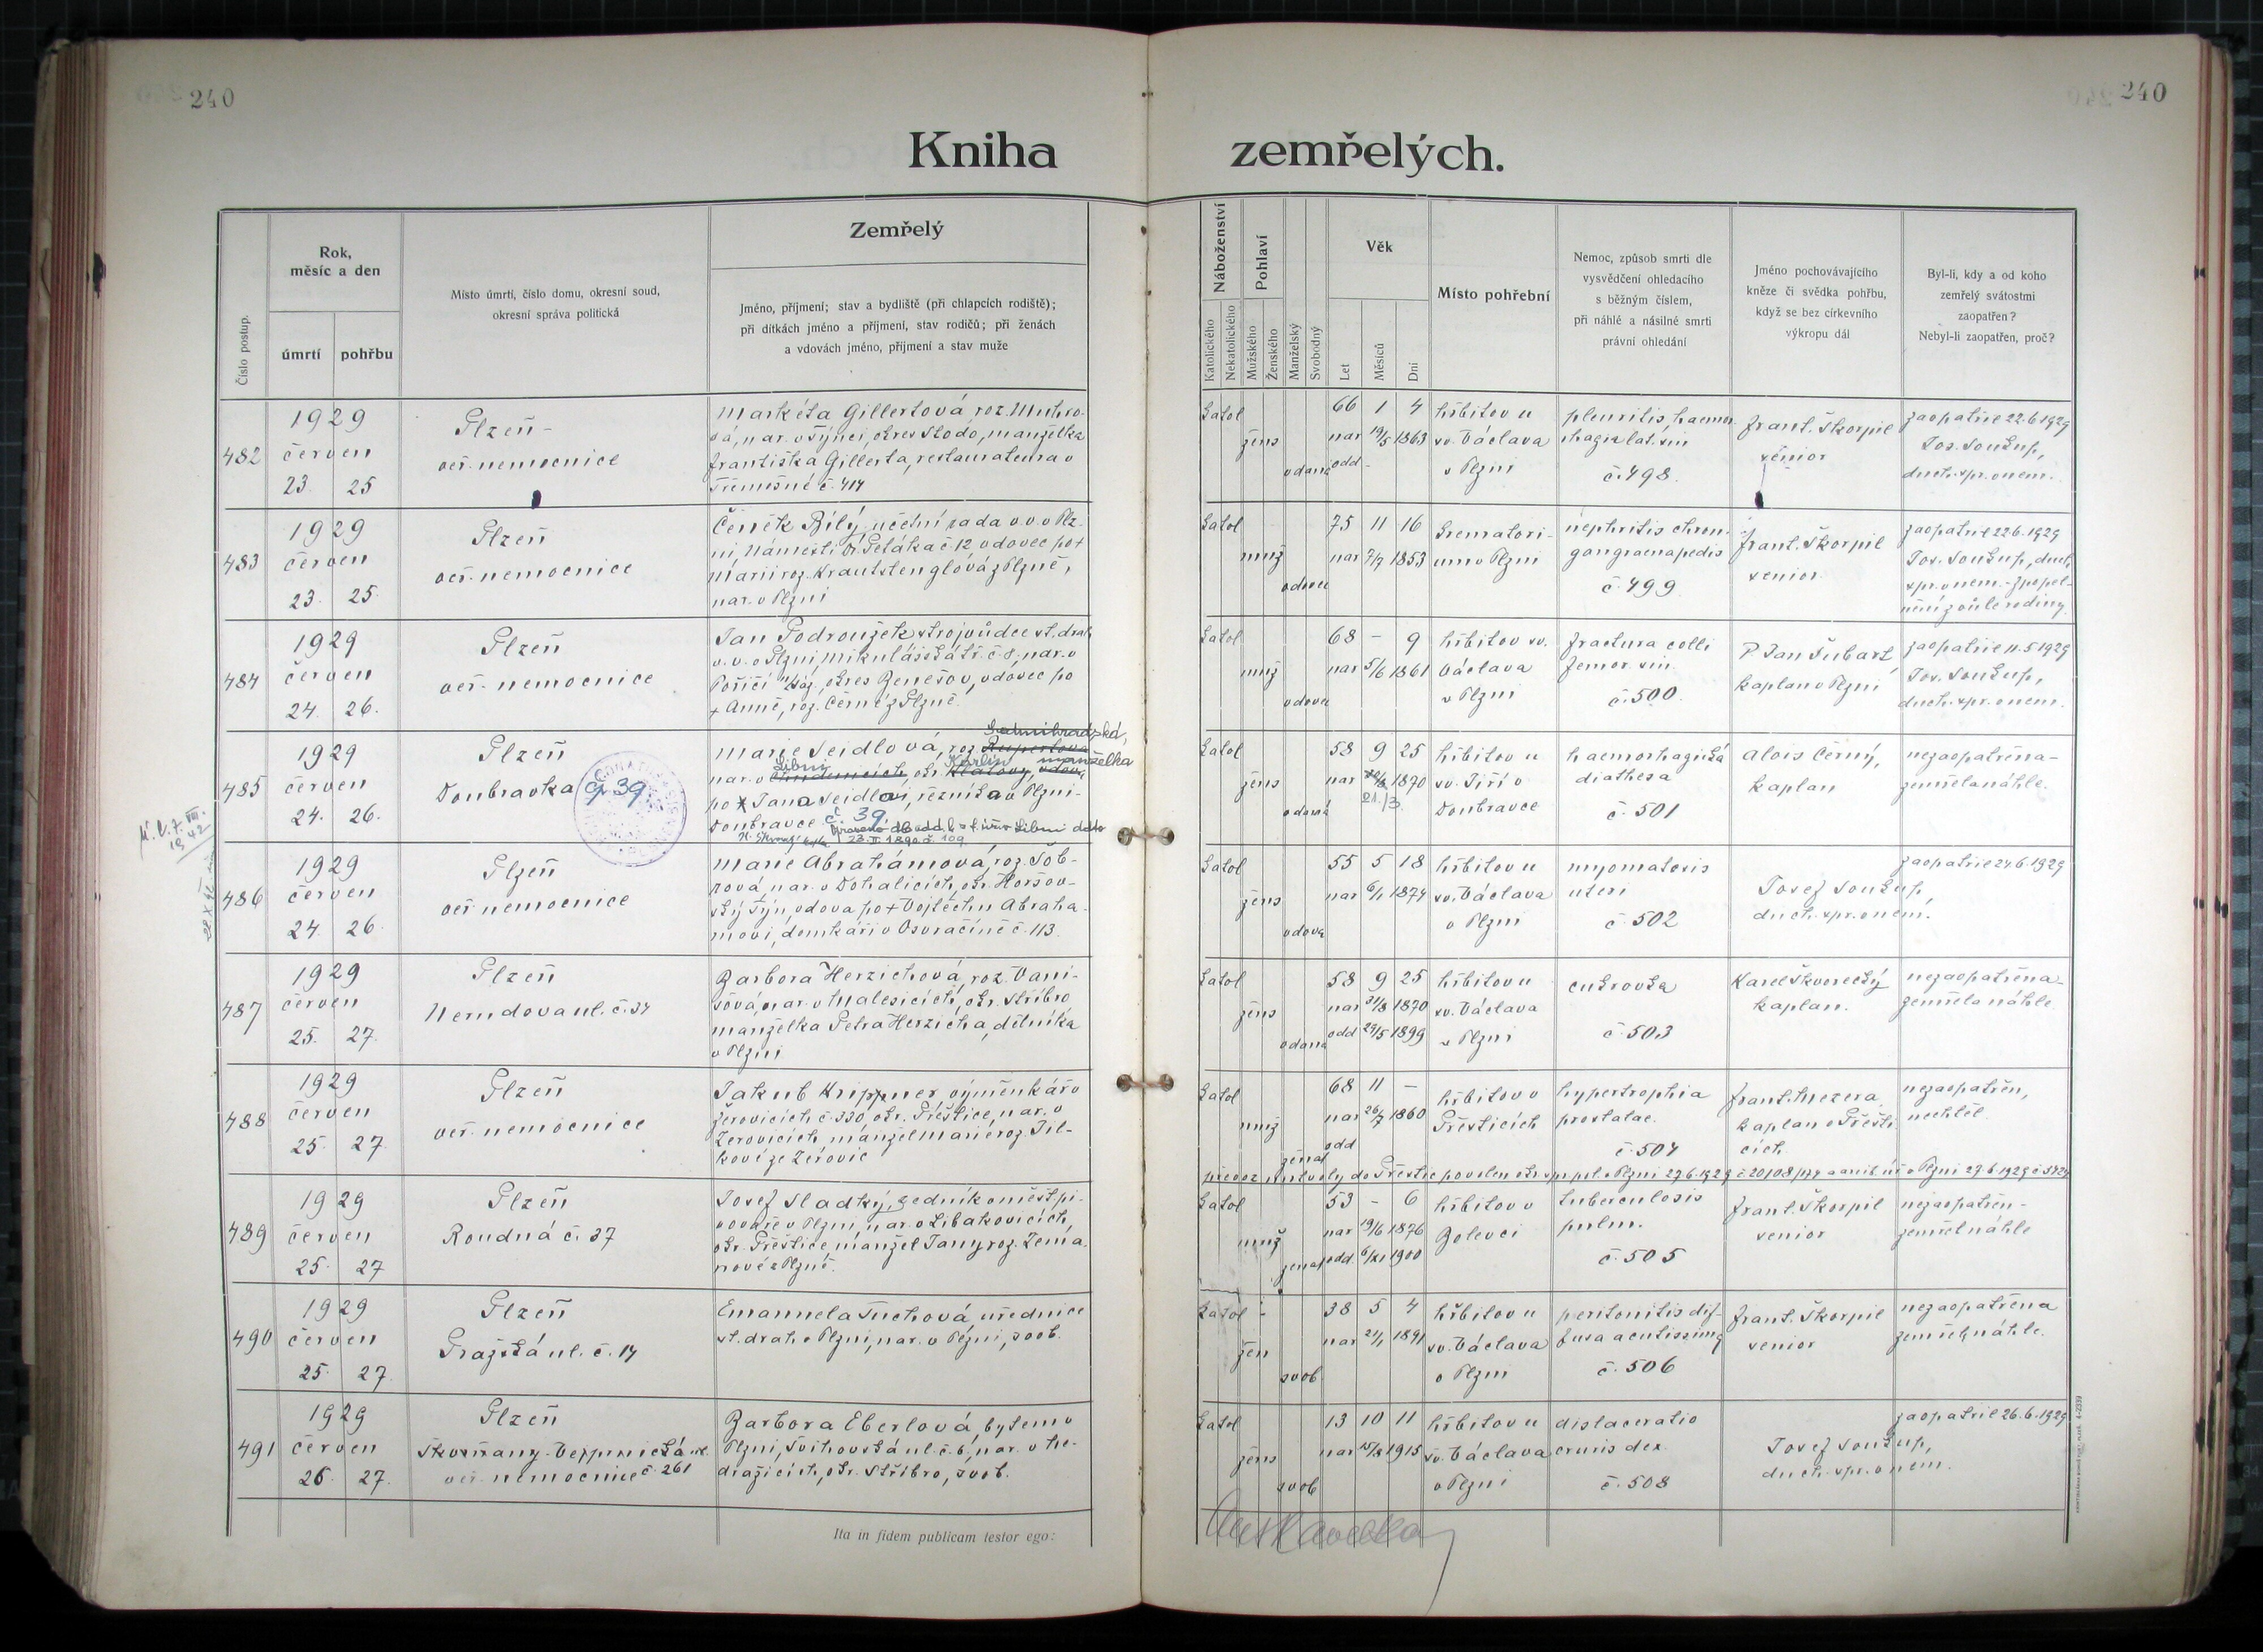 240
240
Kniha zemřelých.
Číslo postup.
Rok,
měsíc a den
úmrtí
pohřbu
Místo úmrtí, číslo domu, okresní soud,
okresní správa politická
Zemřelý
Jméno, příjmení; stav a bydliště (při chlapcích rodiště);
při dítkách jméno a příjmení, stav rodičů; při ženách
a vdovách jméno, příjmení a stav muže
Náboženství
Katolického
Nekatolického
Pohlaví
Mužského
Ženského
Manželský
Svobodný
Věk
Let
Měsíců
Dní
Místo pohřební
Nemoc, způsob smrti dle
vysvědčení ohledacího
s běžným číslem,
při náhlé a násilné smrti
právní ohledání
Jméno pochovávajícího
kněze či svědka pohřbu,
když se bez církevního
výkropu dál
Byl-li, kdy a od koho
zemřelý svátostmi
zaopatřen?
Nebyl-li zaopatřen, proč?
482
1929
červen
23. 25
Plzeň -
veř. nemocnice
Markéta Gillertová roz. 
vá, nar. v Týnci, okres Stodo, manželka
Františka Gillerta, restauratéra v
Třemošné č. 414
katol
žens
vdaná
66 1 4
nar 19/5 1863
odd -
hřbitov u
sv. Václava
v Plzni
pleuritis haemor
rhagia lat. sin
č. 498.
Frant. Škorpil
senior
zaopatřil 22.6.1929
Jos. Soukup,
duch. spr. v nem.
483
1929
červen
23. 25.
Plzeň
veř. nemocnice
Čeněk Bílý, účetní rada v.v. v Plz-
ni, Náměstí Dr Petáka č 12 vdovec po +
Marii roz. Krautstenglové z Plzně,
nar. v Plzni
katol
muž
vdovec
75 11 16
nar 7/7 1853
krematori-
um v Plzni
nephritis chron.
gangraena pedis
č. 499
Frant. Škorpil
senior.
zaopatřil 22.6.1929
Jos. Soukup, duch.
spr. v nem. - zpopel-
nění z vůle rodiny
484
1929
červen
24. 26.
Plzeň
veř. nemocnice
Jan Podroužek strojvůdce st. drah
v.v. v Plzni, Mikulášská tř. č. 8, nar. v
Poříčí n/Sáz., okres Benešov, vdovec po
+ Anně, roz. Černé z Plzně.
katol
muž
vdovec
68 - 9
nar 5/6 1861
hřbitov sv.
Václava
v Plzni
fractura colli
femor. sin.
č. 500.
P. Jan Šubart
kaplan v Plzni
zaopatřil 11.5.1929
Jos. Soukup,
duch. spr. v nem.
485
1929
červen
24. 26.
Plzeň
Doubravka čp 39
Sedmihradská,
Marie Seidlová, roz. Rupertová
Libni Karlín manželka
nar. v , okr. Klatovy, vdova
po + Jana Seidlovi, řezníka v Plzni-
Doubravce č. 39.
23. II. 1890 č. 109
katol
žens
vdaná
58 9 25
nar 1870
21./3.
hřbitov u
sv. Jiří v
Doubravce
haemorhagická
diathesa
č. 501
Alois Černý,
kaplan
nezaopatřena -
zemřela náhle.
486
1929
červen
24. 26
Plzeň
veř nemocnice
Marie Abrahámová, roz. Šob-
rová nar. v Dohalicích, okr. Horšov-
ský Týn, vdova po + Vojtěchu Abraha-
movi, domkáři v Osvračíně č. 113.
katol
žens
vdova
55 5 18
nar 6/1 1874
hřbitov u
sv. Václava
v Plzni
myomatosis
uteri
č. 502
Josef Soukup,
duch. spr. v nem.
zaopatřil 24.6.1929
487
1929
červen
25. 27.
Plzeň
Nerudova ul. č. 34
Barbora Herzichová, roz. Vaní-
čová, nar. v Malesicích, okr. Stříbro
manželka Petra Herzicha, dělníka
v Plzni
katol
žens
vdaná
58 9 25
nar 31/8 1870
odd 29/5 1899
hřbitov u
sv. Václava
v Plzni
cukrovka
č. 503
Karel Škvorecký
kaplan.
nezaopatřena -
zemřela náhle
488
1929
červen
25. 27.
Plzeň
veř. nemocnice
Jakub Krippner výměnkář v
Žerovicích č. 330, okr. Přeštice, nar. v
Žerovicích manžel Marie roz. Jil-
kové ze Žerovic
katol
muž
ženat
68 11 -
nar 26/7 1860
odd
hřbitov v
Přešticích
hypertrophia
prostatae.
č. 504
Frant. Mezera,
kaplan v Přešti-
cích
nezaopatřen,
nechtěl.
převoz mrtvoly do Přeštic povolen okr. v Plzni 27.6.1929
489
1929
červen
25. 27
Plzeň
Roudná č. 37
Josef Sladký, zedník v měšť. pi-
vováře v Plzni, nar. v Libákovicích,
okr. Přeštice manžel Jany roz. Zema-
nové z Plzně.
katol
muž
ženat
53 - 6
nar 19/6 1876
odd. 6/XI 1900
hřbitov v
Bolevci
tuberculosis
pulm.
č. 505
Frant. Škorpil
senior
nezaopatřen -
zemřel náhle
490
1929
červen
25. 27
Plzeň
Pražská ul. č. 14
Emanuela Tuchová, úřednice
st. drah v Plzni, nar. v Plzni, svob.
katol
žen
svob
38 5 4
nar 21/1 1891
hřbitov u
sv. Václava
v Plzni
peritonitis dif-
fusa acutissima
č. 506
Frant. Škorpil
senior
nezaopatřena
zemřela náhle.
491
1929
červen
26. 27.
Plzeň
Skvrňany - Vejprnická ul.
veř. nemocnice č. 261
Barbora Eberlová, bytem v
Plzni, Švihovská ul. č. 6, nar. v Ne-
dražicích, okr. Stříbro, svob.
katol
žens
svob
13 10 11
nar 15/8 1915
hřbitov u
sv. Václava
v Plzni
dislaceratio
cruris dex.
č. 508
Josef Soukup,
duch. spr. v nem.
zaopatřil 26.6.1929
Ita in fidem publicam testor ego: